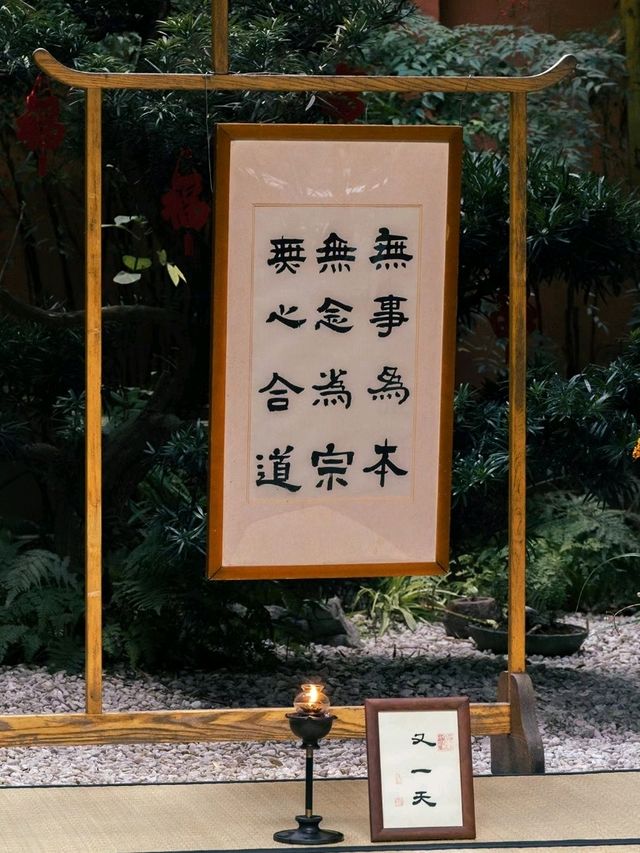 無事為本
無念為宗
無心合道
又一天